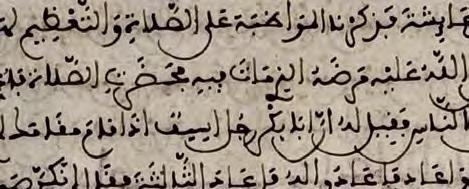 عَايِشَةَ فَذَكَرْنَا الْمُوَاظَبَةَ عَلَى الصَّلَاةِ وَالتَّعْظِيمَ لَهَا
اللَّهُ عَلَيْهِ مَرَضَهُ الَّذِي مَاتَ فِيهِ فَحَضَرَتِ الصَّلَاةُ
بِالنَّاسِ فَقِيلَ لَهُ إِنَّ أَبَا بَكْرٍ رَجُلٌ أَسِيفٌ إِذَا قَامَ مَقَامَكَ
أَعَادَ فَأَعَادُوا لَهُ فَأَعَادَ الثَّالِثَةَ فَقَالَ إِنَّكُنَّ